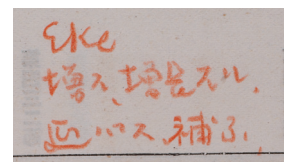 Eke
増ス、増長スル、
延ハス、補フ、